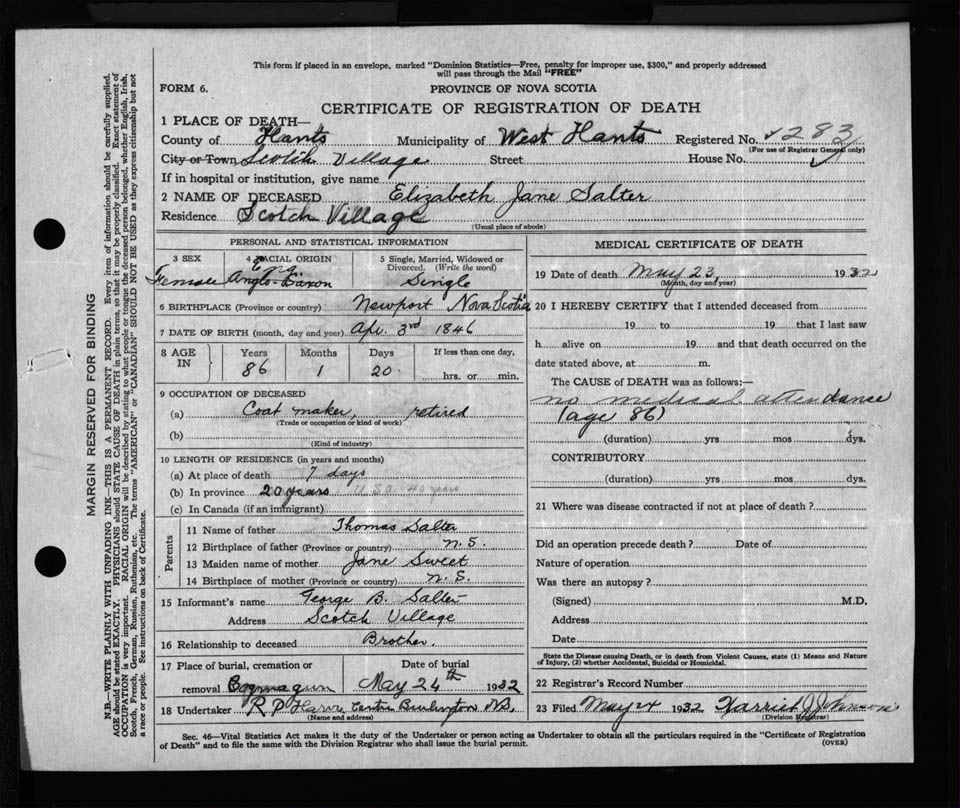 This form if placed in an envelope, marked "Dominion Statistics—Free, penalty for improper use, $300," and properly addressed
will pass through the Mail "FREE"
FORM 6.
PROVINCE OF NOVA SCOTIA
CERTIFICATE OF REGISTRATION OF DEATH
1 PLACE OF DEATH—
County of Hants Municipality of West Hants Registered No. 283
(For use of Registrar General only)
City or Town Scotch Village Street House No.
If in hospital or institution, give name
2 NAME OF DECEASED Elizabeth Jane Salter
Residence Scotch Village
(Usual place of abode)
PERSONAL AND STATISTICAL INFORMATION
3 SEX
Female
4 RACIAL ORIGIN
Eng.
Anglo-Saxon
5 Single, Married, Widowed or
Divorced. (Write the word)
Single
6 BIRTHPLACE (Province or country) Newport Nova Scotia
7 DATE OF BIRTH (month, day and year) Apr. 3rd 1846
8 AGE
IN
Years Months Days If less than one day,
86 1 20 hrs. or min.
9 OCCUPATION OF DECEASED
(a) Coat maker, retired
(Trade or occupation or kind of work)
(b)
(Kind of industry)
10 LENGTH OF RESIDENCE (in years and months)
(a) At place of death 7 days
(b) In province 20 years U.S.A. 40 years
(c) In Canada (if an immigrant)
Parents
11 Name of father Thomas Salter
12 Birthplace of father (Province or country) N.S.
13 Maiden name of mother Jane Sweet
14 Birthplace of mother (Province or country) N.S.
15 Informant's name George B. Salter
Address Scotch Village
16 Relationship to deceased Brother.
17 Place of burial, cremation or
removal Cogmagun
Date of burial
May 24th 1932
18 Undertaker R P Harvie Centre Burlington N.S.
(Name and address)
MEDICAL CERTIFICATE OF DEATH
19 Date of death May 23, 1932
(Month, day and year)
20 I HEREBY CERTIFY that I attended deceased from
19 to 19 that I last saw
h alive on 19 and that death occurred on the
date stated above, at m.
The CAUSE OF DEATH was as follows:—
no medical attendance
(age 86)
(duration) yrs mos dys.
CONTRIBUTORY
(duration) yrs mos dys.
21 Where was disease contracted if not at place of death?
Did an operation precede death? Date of
Nature of operation
Was there an autopsy?
(Signed) M.D.
Address
Date
State the Disease causing Death, or in death from Violent Causes, state (1) Means and Nature
of Injury, (2) whether Accidental, Suicidal or Homicidal.
22 Registrar's Record Number
23 Filed May 24 1932 Harriet J Johnson
(Division Registrar)
Sec. 46—Vital Statistics Act makes it duty of the Undertaker or person acting as Undertaker to obtain all the particulars required in the "Certificate of Registration
of Death" and to file the same with the Division Registrar who shall issue the burial permit.
(OVER)
MARGIN RESERVED FOR BINDING
N.B.—WRITE PLAINLY WITH UNFADING INK—THIS IS A PERMANENT RECORD. Every item of information should be carefully supplied.
AGE should be stated EXACTLY. PHYSICIANS should STATE CAUSE OF DEATH in plain terms, so that it may be properly classified. Exact statement of
OCCUPATION is very important. RACIAL ORIGIN will be described by stating to what people or tongue the deceased person belonged, whether English, Irish,
Scotch, French, German, Russian, Ruthenian, etc. The terms "AMERICAN" or "CANADIAN" SHOULD NOT BE USED as they express citizenship but not
a race or people. See instructions on back of Certificate.